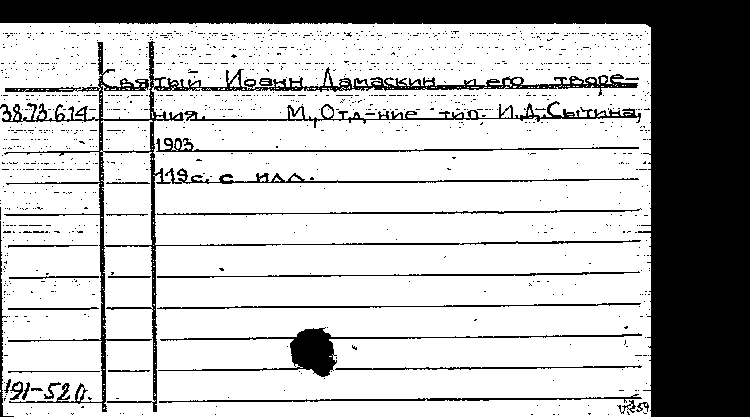 Святый Иоанн Дамаскин и его творе-
38.73.6.14. ния. М., Отд-ние тип. И.Д. Сытина,
1903.
119с. с илл.
191-520.